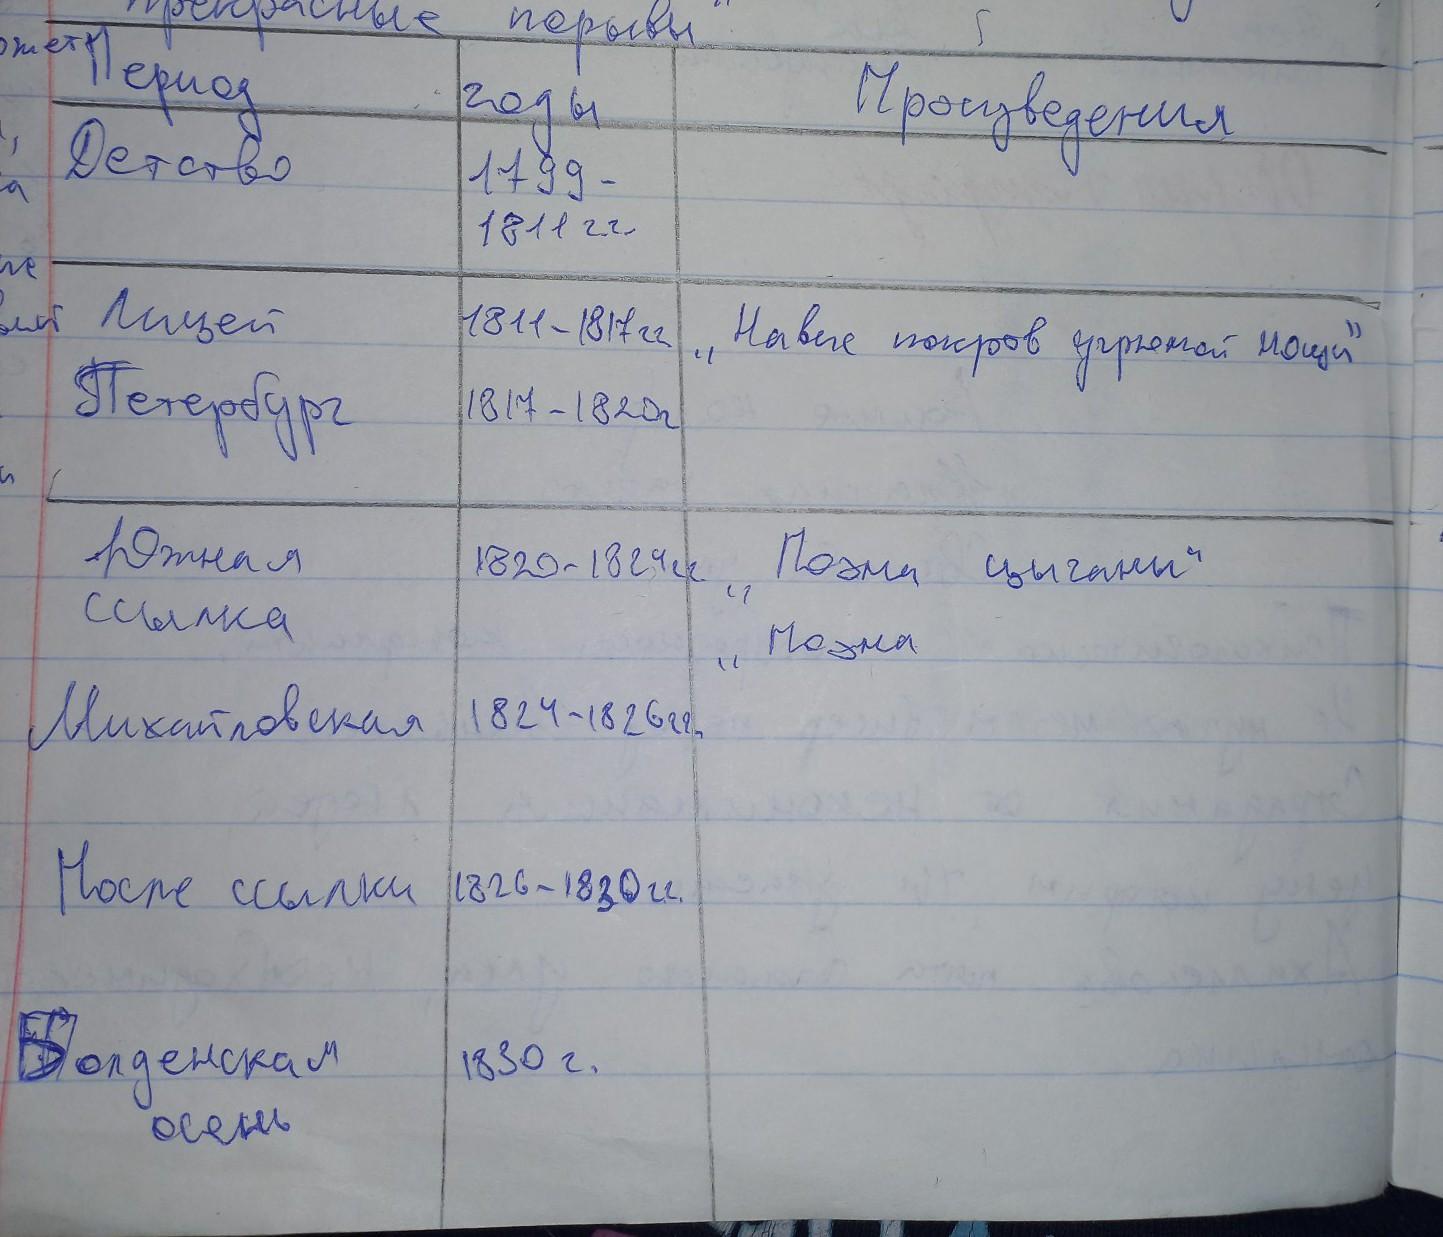 прекрасные порывы"
Период годы Произведения
Детство 1799-
1811 гг.
Лицей 1811-1817гг „Навис покров угрюмой нощи"
Петербург 1817-1820г
Южная 1820-1824гг „Поэма цыганы"
ссылка „Поэма
Михайловская 1824-1826гг.
После ссылки 1826-1830гг.
Болденская 1830 г.
осень